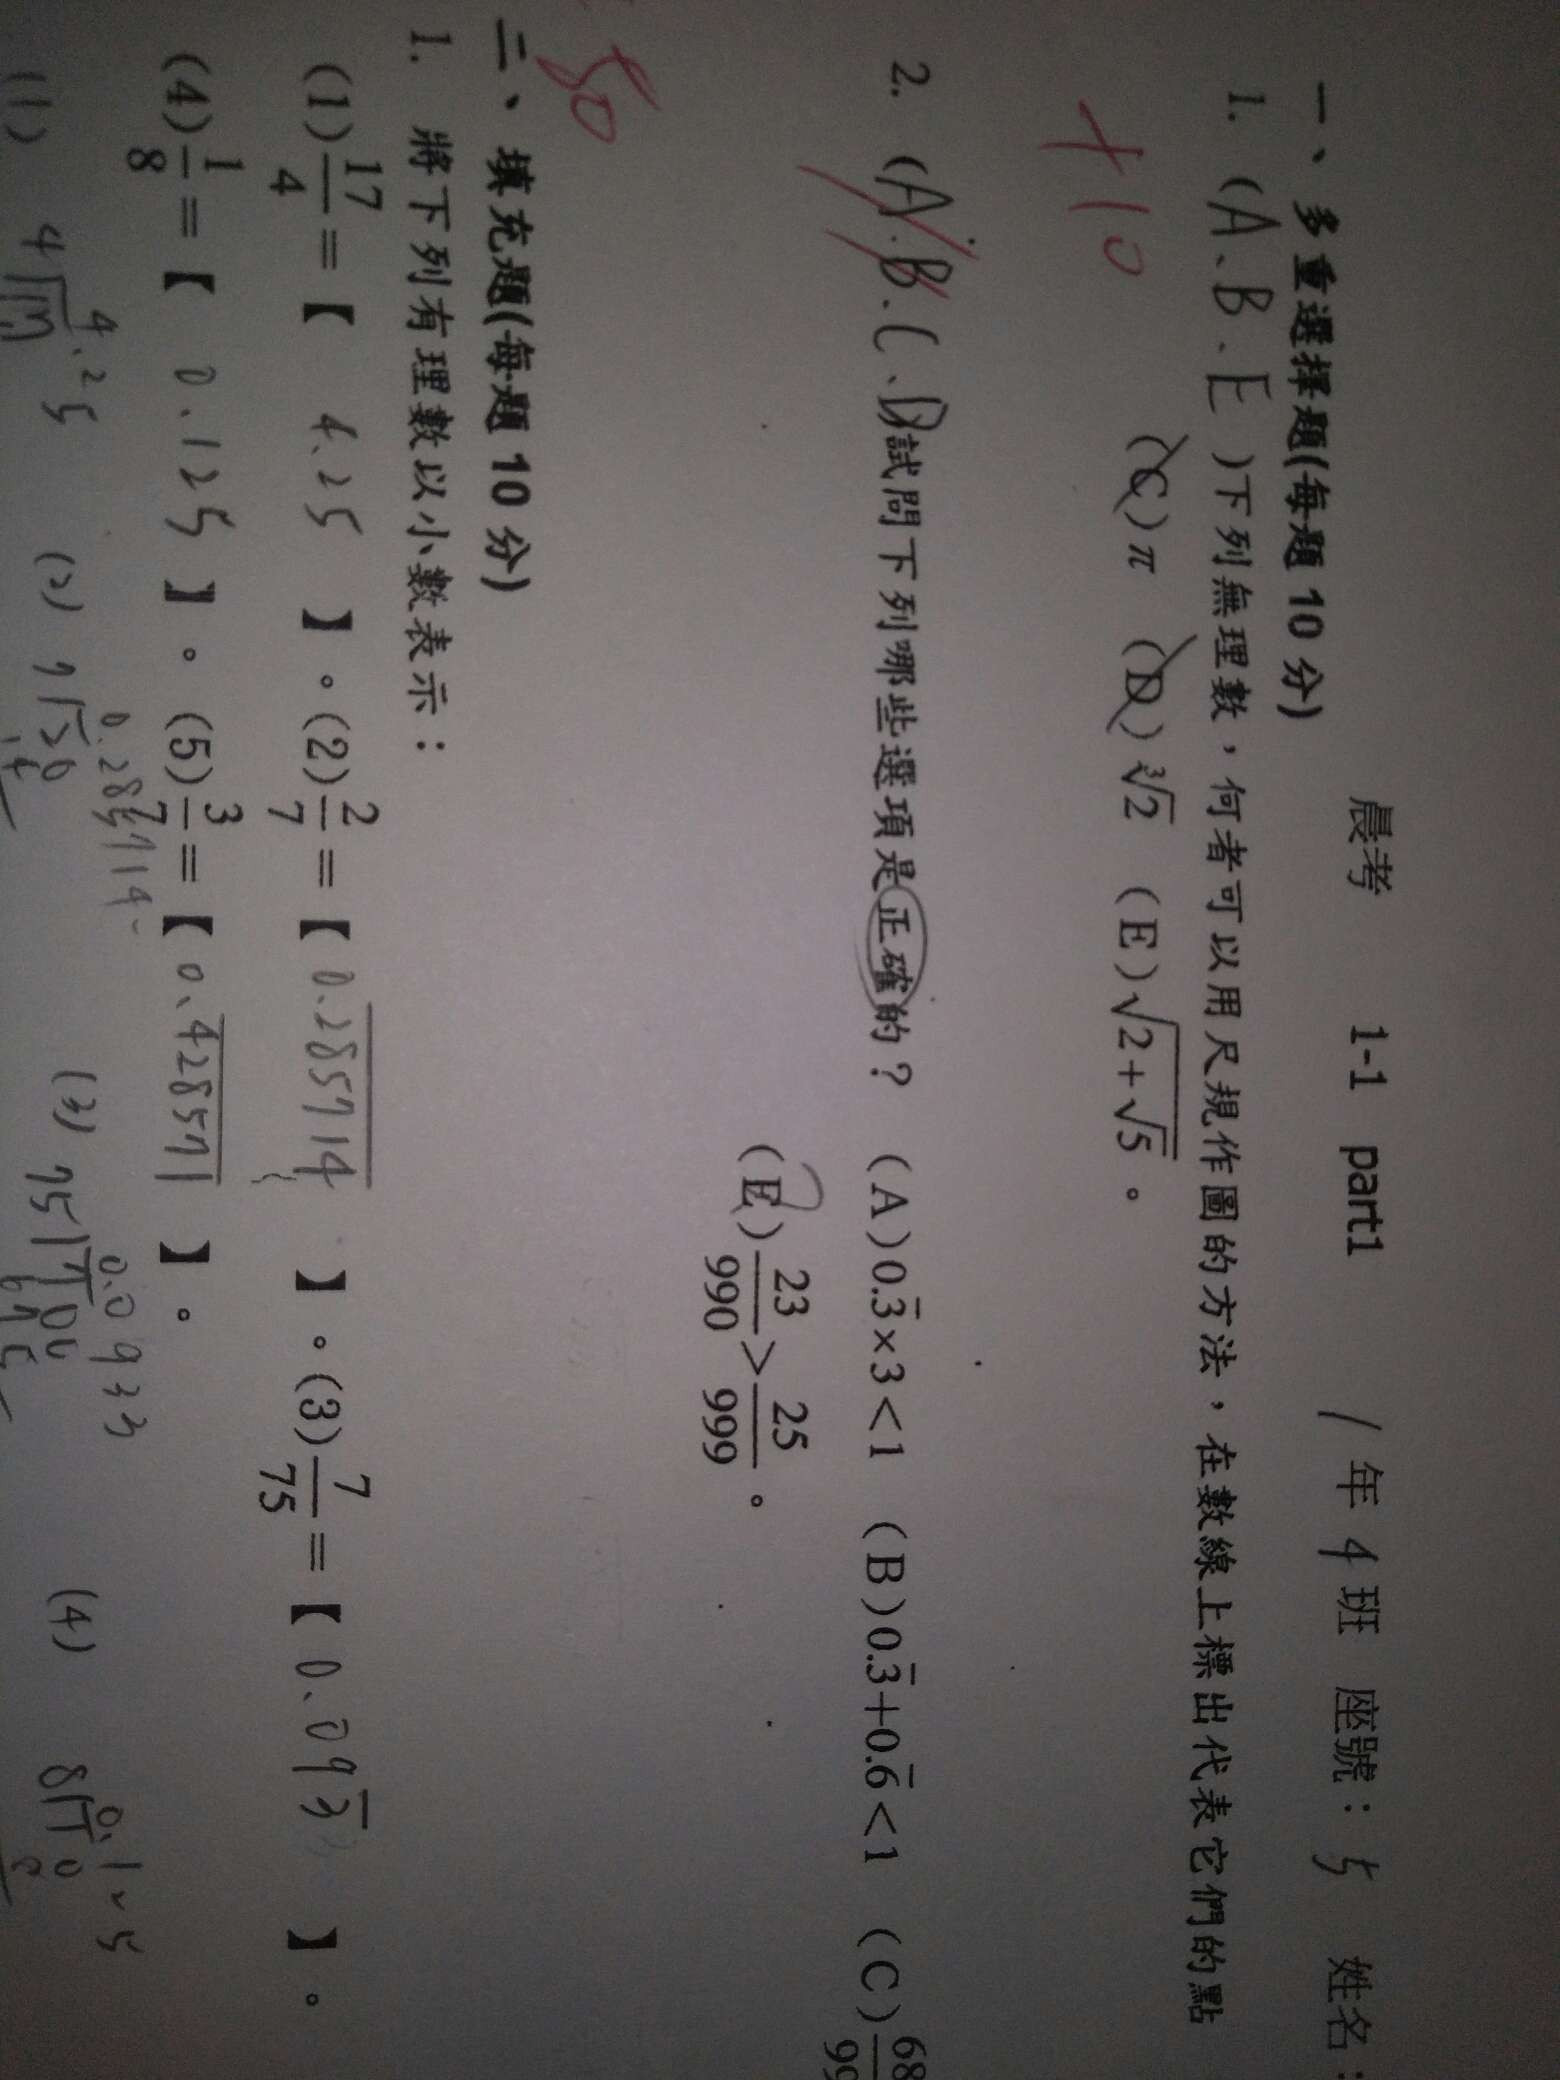 晨考 1-1 part1 1年4班 座號：5 姓名：
一、多重選擇題(每題 10 分)
1. (A、B、E)下列無理數，何者可以用尺規作圖的方法，在數線上標出代表它們的點
(C)π (D)∛2 (E)√(2+√5)。
+10
2. (A、B、C、D)試問下列哪些選項是正確的？ (A)0.3̅×3<1 (B)0.3̅+0.6̅<1 (C)68/99
(E)23/990>25/999。
80
二、填充題(每題 10 分)
1. 將下列有理數以小數表示：
(1)17/4=【 4.25 】。(2)2/7=【 0.2̅8̅5̅7̅1̅4̅ 】。(3)7/75=【 0.093̅ 】。
(4)1/8=【 0.125 】。(5)3/7=【 0.4̅2̅8̅5̅7̅1̅ 】。
4.25 0.285714 0.0933 0.125
(1) 4 17 (2) 7 20 (3) 75 700 (4) 8 10
14 675 8